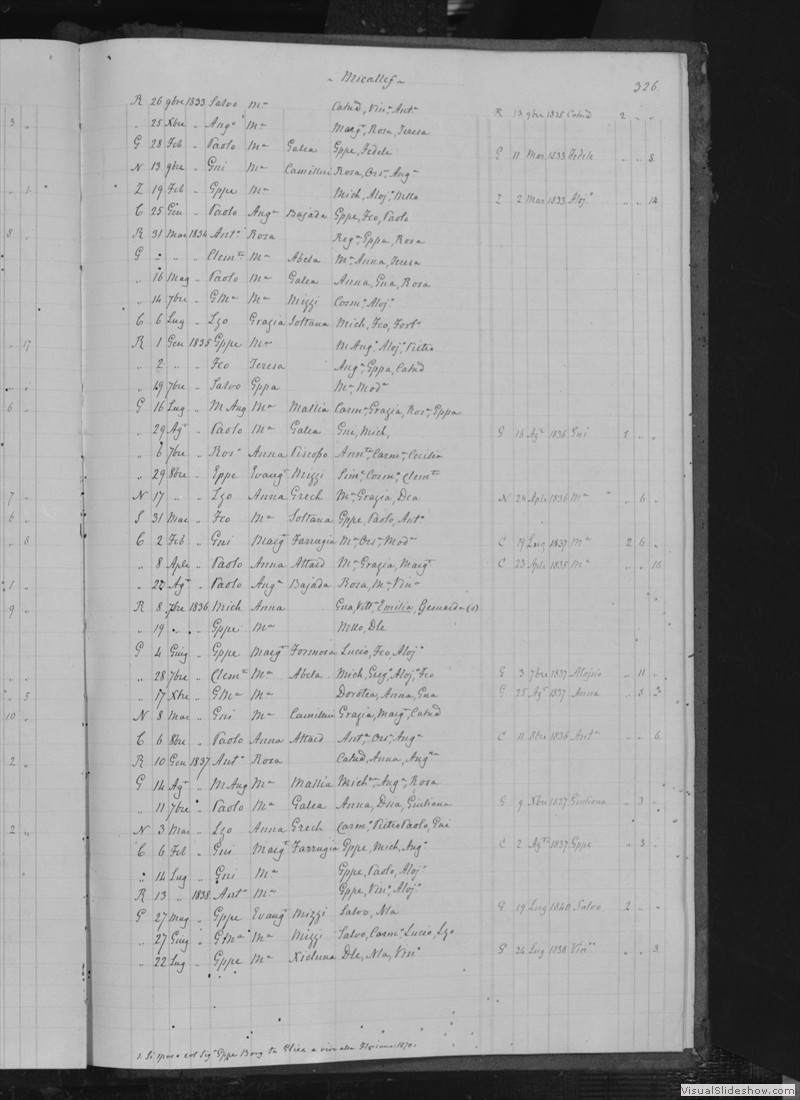 - Micallef -
326.
R 26 9bre 1833 Salvo Ma Catnd, Vina, Anta R 13 9bre 1835 Catnd 2 „ „
„ 25 Xbre „ Ango Ma Marga, Rosa, Teresa
G 28 Feb „ Paolo Ma Galea Gppe, Fedele G 11 Mar 1833 Fedele „ „ 8
N 13 9bre „ Gni Ma Camilleri Rosa, Orsa, Anga
Z 19 Feb „ Gppe Ma Mich, Aloja, Mlla Z 2 Mar 1833 Aloja „ „ 14
C 25 Gen „ Paolo Anga Bajada Gppe, Fco, Paolo
R 31 Mar 1834 Anto Rosa Rega, Gppa, Rosa
G „ „ „ Clemte Ma Abela Ma, Anna, Teresa
„ 16 Mag „ Paolo Ma Galea Anna, Gna, Rosa
„ 14 7bre „ GMa Ma Mizzi Carma, Aloja
C 6 Lug „ Lzo Grazia Soltana Mich, Fco, Forta
R 1 Gen 1835 Gppe Ma M Anga, Aloja, Pietro
„ 2 „ „ Fco Teresa Anga, Gppa, Catnd
„ 19 7bre „ Salvo Gppa Ma, Moda
G 16 Lug „ M Ang Ma Mallia Carma, Grazia, Rosa, Gppa
„ 29 Ago „ Paolo Ma Galea Gni, Mich, G 16 Ago 1836 Gni 2 „ „
„ 6 7bre „ Roso Anna Piscopo Annta, Carma, Cecilia
„ 29 8bre „ Gppe Evanga Mizzi Sime, Cosmo, Clemte
N 17 „ „ Lzo Anna Grech Ma, Grazia, Dea N 24 Aple 1836 Ma „ 6 „
S 31 Mar „ Fco Ma Soltana Gppe, Paolo, Anto
C 2 Feb „ Gni Marga Farrugia Ma, Orsa, Moda C 19 Lug 1837 Ma 2 6 „
„ 8 Aple „ Paolo Anna Attard Ma, Grazia, Marga C 23 Aple 1835 Ma „ „ 16
„ 22 Ago „ Paolo Anga Bajada Rosa, Ma, Vina
R 8 7bre 1836 Mich Anna Gna, Vitta, Emilia, Gemarda (1)
„ 19 „ „ Gppe Ma Mlla, Dle
G 4 Giug „ Gppe Marga Formosa Lucio, Fco, Aloja
„ 28 7bre „ Clemte Ma Abela Mich, Grego, Aloja, Fco G 3 7bre 1837 Aloisio „ 11 „
„ 17 Xbre „ GMa Ma Dorotea, Anna, Gna G 25 Ago 1837 Anna „ 8 3
N 8 Mar „ Gni Ma Camilleri Grazia, Marga, Catnd
C 6 8bre „ Paolo Anna Attard Anta, Orsa, Anga C 11 8bre 1836 Anta „ „ 6
R 10 Gen 1837 Anto Rosa Catnd, Anna, Anga
G 14 Ago „ M Ang Ma Mallia Michna, Anga, Rosa
„ 11 7bre „ Paolo Ma Galea Anna, Dna, Giuliana G 9 Xbre 1837 Giuliana „ 3 „
N 3 Mar „ Lzo Anna Grech Carmo, Pietro Paolo, Gni
C 6 Feb „ Gni Marga Farrugia Gppe, Mich, Ango C 2 Ago 1837 Gppe „ 3 „
„ 14 Lug „ Gni Ma Gppe, Paolo, Aloja
R 13 „ 1838 Anto Ma Gppe, Vino, Aloja
G 27 Mag „ Gppe Evanga Mizzi Salvo, Nla G 19 Lug 1840 Salvo 2 „ „
„ 27 Giug „ GMa Ma Mizzi Salvo, Carmo, Lucio, Lzo
„ 22 Lug „ Gppe Ma Xicluna Dle, Nla, Vino G 24 Lug 1838 Vino „ „ 3
1. Si sposò col Sigr Gppe Borg
VisualSlideshow.com